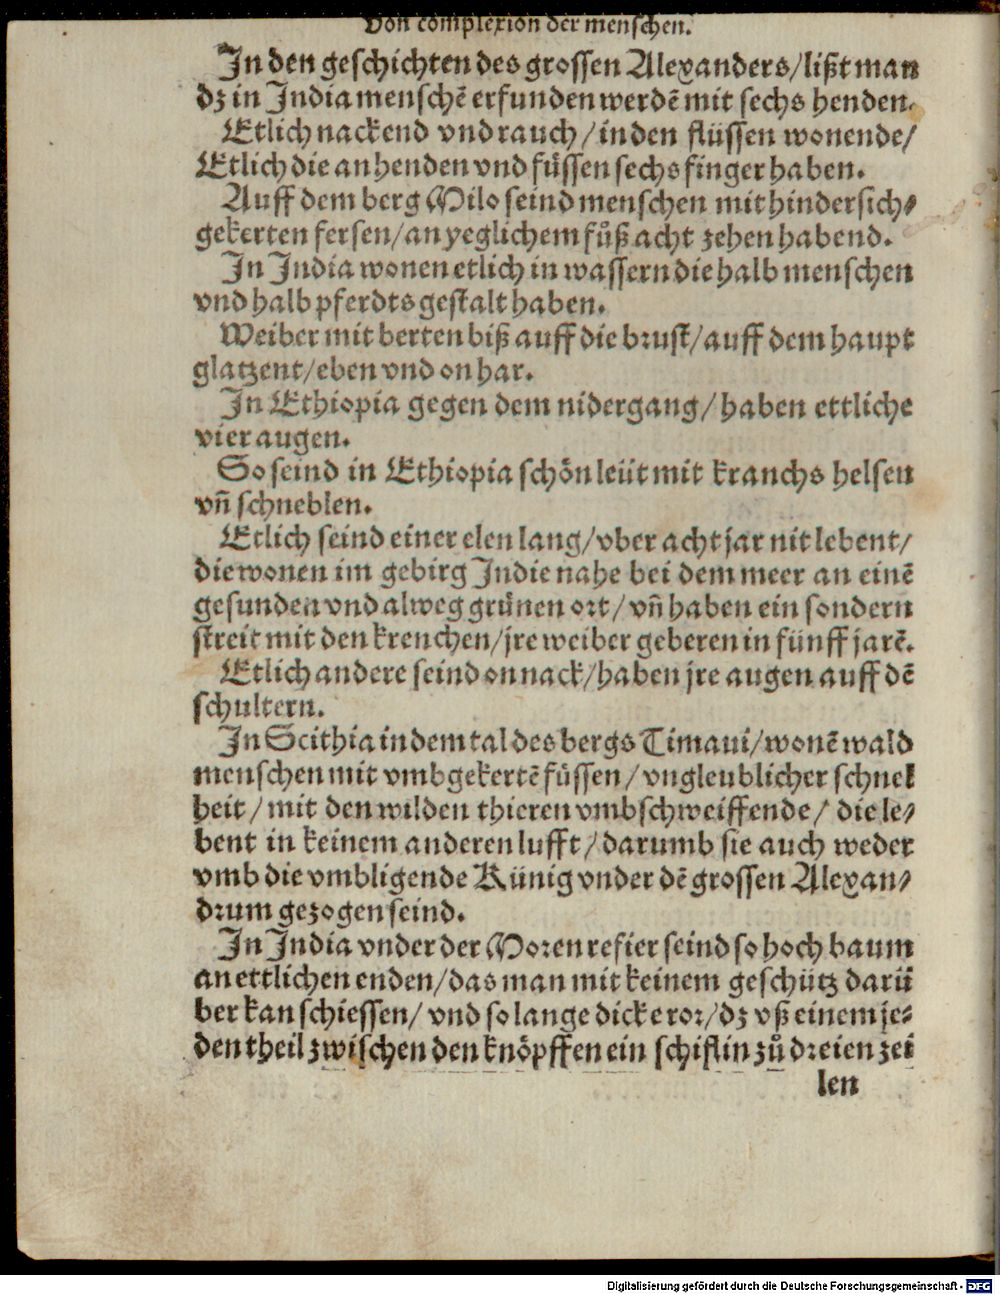 Von complexion der menschen.
In den geschichten des grossen Alexanders/lißt man
dz in India menschē erfunden werdē mit sechs henden.
Etlich nackend vnd rauch/in den flüssen wonende/
Etlich die an henden vnd füssen sechs finger haben.
Auff dem berg Milo seind menschen mit hindersich⸗
gekerten fersen/an yeglichem fůß acht zehen habend.
In India wonen etlich in wassern die halb menschen
vnd halb pferdts gestalt haben.
Weiber mit berten biß auff die brust/auff dem haupt
glatzent/eben vnd on har.
In Ethiopia gegen dem nidergang/haben ettliche
vier augen.
So seind in Ethiopia schön leüt mit kranchs helsen
vñ schneblen.
Etlich seind einer elen lang/vber acht jar nit lebent/
die wonen im gebirg Indie nahe bei dem meer an einē
gesunden vnd alweg grünen ort/vñ haben ein sondern
streit mit den krenchen/jre weiber geberen in fünff jarē.
Etlich andere seind on nack/haben jre augen auff dē
schultern.
In Scithia in dem tal des bergs Timaui/wonē wald
menschen mit vmbgekertē füssen/vngleublicher schnel
heit/mit den wilden thieren vmbschweiffende/die le⸗
bent in keinem anderen lufft/darumb sie auch weder
vmb die vmbligende Künig vnder dē grossen Alexan⸗
drum gezogen seind.
In India vnder der Moren refier seind so hoch baum
an ettlichen enden/das man mit keinem geschütz darü
ber kan schiessen/vnd so lange dicke ror/dz vß einem je⸗
den theil zwischen den knöpffen ein schiflin zů dreien zei
len
Digitalisierung gefördert durch die Deutsche Forschungsgemeinschaft - DFG